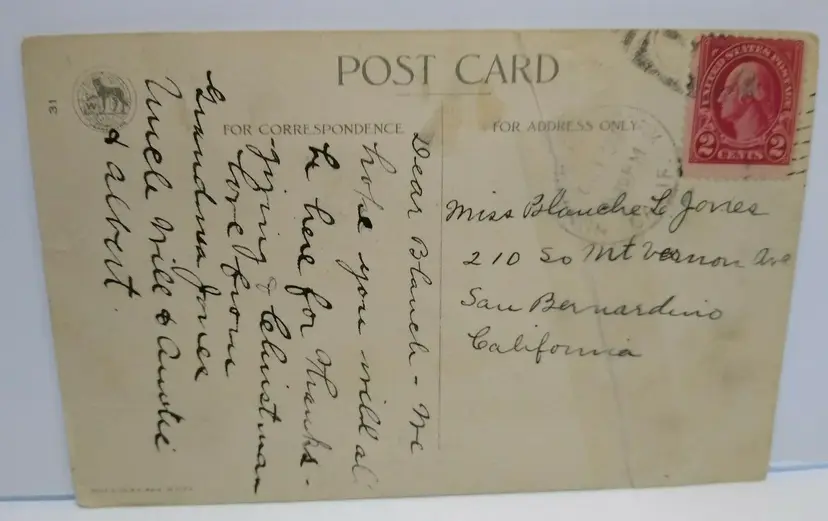 POST CARD
31
FOR CORRESPONDENCE
FOR ADDRESS ONLY
UNITED STATES POSTAGE
2 CENTS 2
Dear Blanch - We
hope you will al
be here for Thanks-
giving & Christmas
love from
Grandma Jones
Uncle Will & Auntie
& Albert.
Miss Blanche L Jones
210 So Mt Vernon Ave
San Bernardino
California